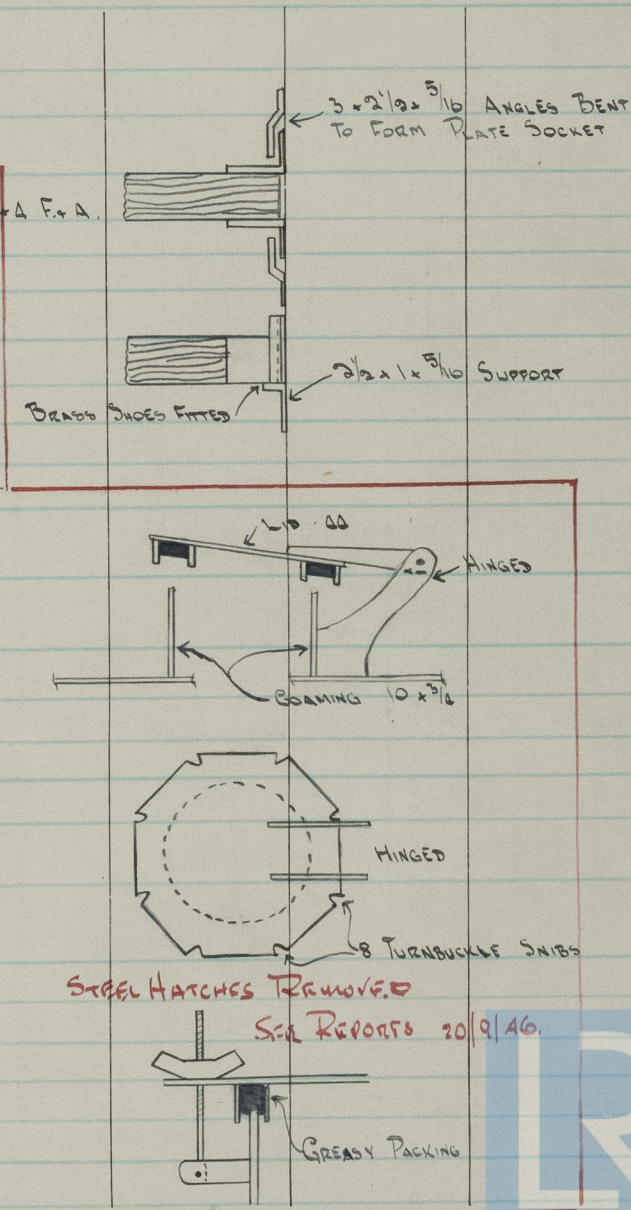 3 x 2 1/2 x 5/16 ANGLES BENT
TO FORM PLATE SOCKET
F. & A.
2 1/2 x 1 x 5/16 SUPPORT
BRASS SHOES FITTED
LID
HINGED
COAMING 10 x 3/4
HINGED
8 TURNBUCKLE SNIBS
STEEL HATCHES REMOVED
SEE REPORTS 20/9/46.
GREASY PACKING
LR